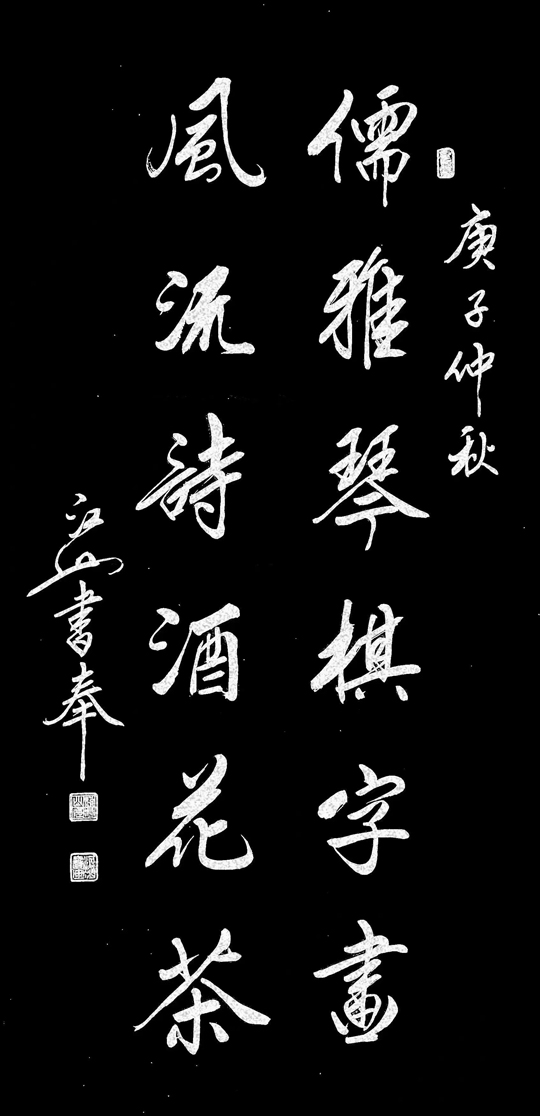 庚子仲秋
儒雅琴棋字畫
風流詩酒花茶
書奉